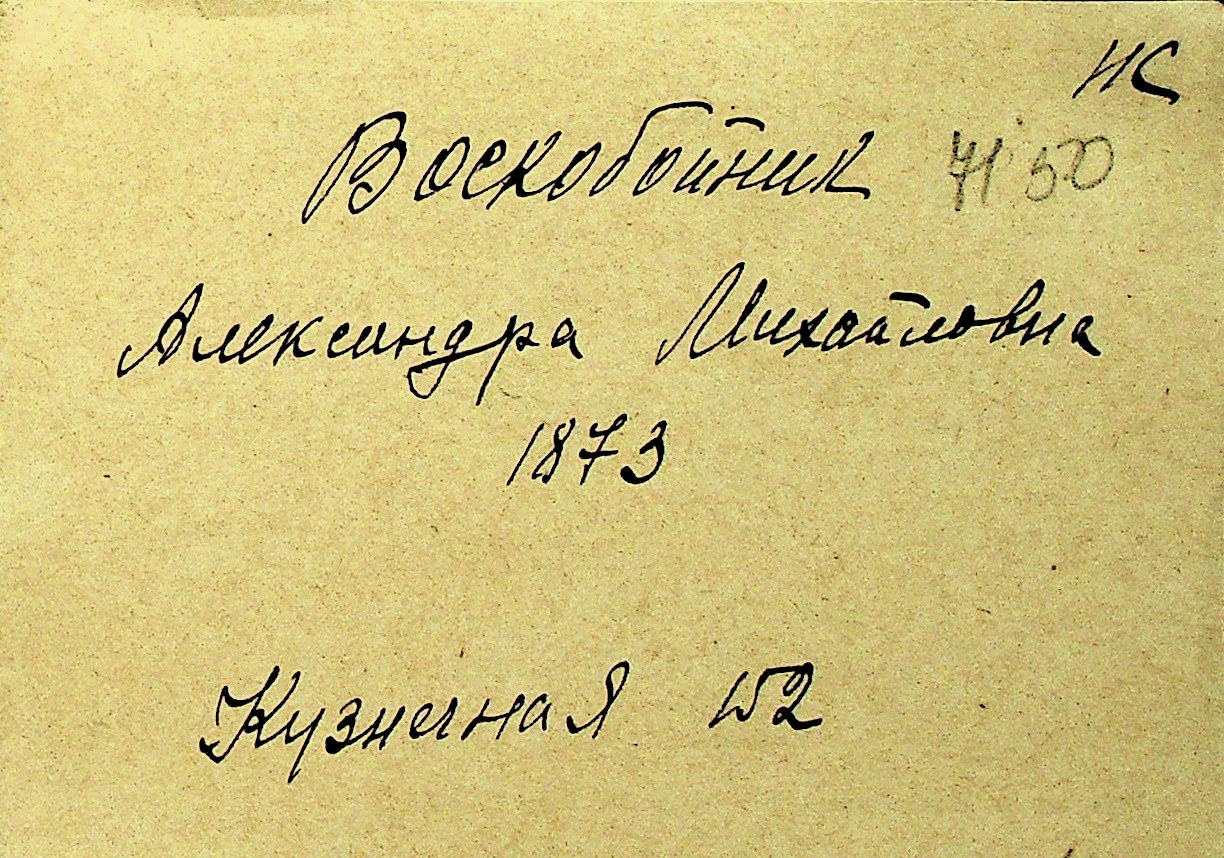 НС
Воскобойник 7150
Александра Михайловна
1873
Кузнечная 152